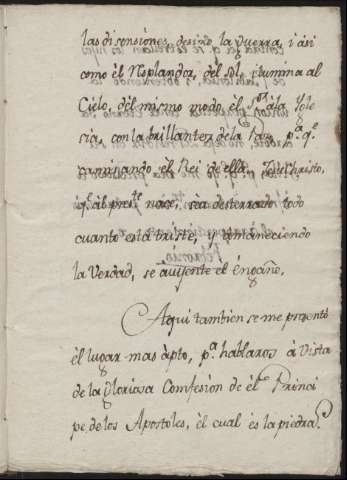 las disensiones, desino la Guerra, i ási
como èl Resplandor, del sol, ilumina al
Cielo, dèl mismo modo, èl S.or à la Ygle
sia, con la brillantez de la Paz, p.a q.e
caminando, èl Rei de ella, JesuChristo,
q.e al pres.te nace, sea desterrado todo
cuanto està triste, y permaneciendo
la Verdad, se aùisente èl éngaño.
Aqui tambien se me presentò
èl lugar mas àpto, p.a hablaros à vista
de la Gloriosa Comfesion de èl Princi
pe, de los Apostoles, èl cual ès la piedra